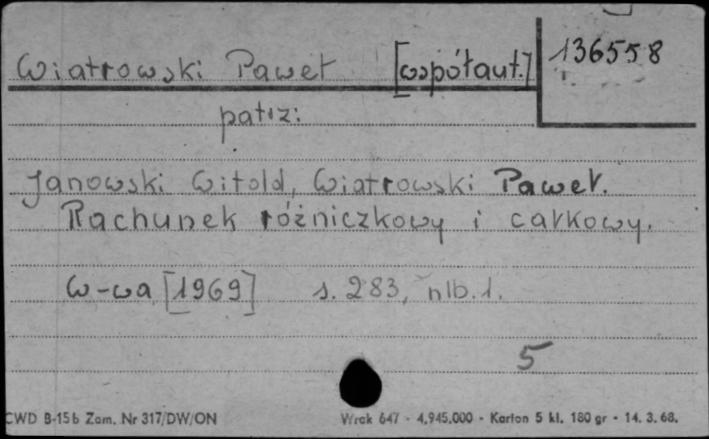 Wiatrowski Paweł [współaut.] 136558
patrz:
Janowski Witold, Wiatrowski Paweł.
Rachunek różniczkowy i całkowy.
W-wa [1969] s. 283, nlb. 1.
5
CWD B-15b Zam. Nr 317/DW/ON Wrck 647 - 4.945.000 - Karton 5 kl. 180 gr - 14. 3. 68.